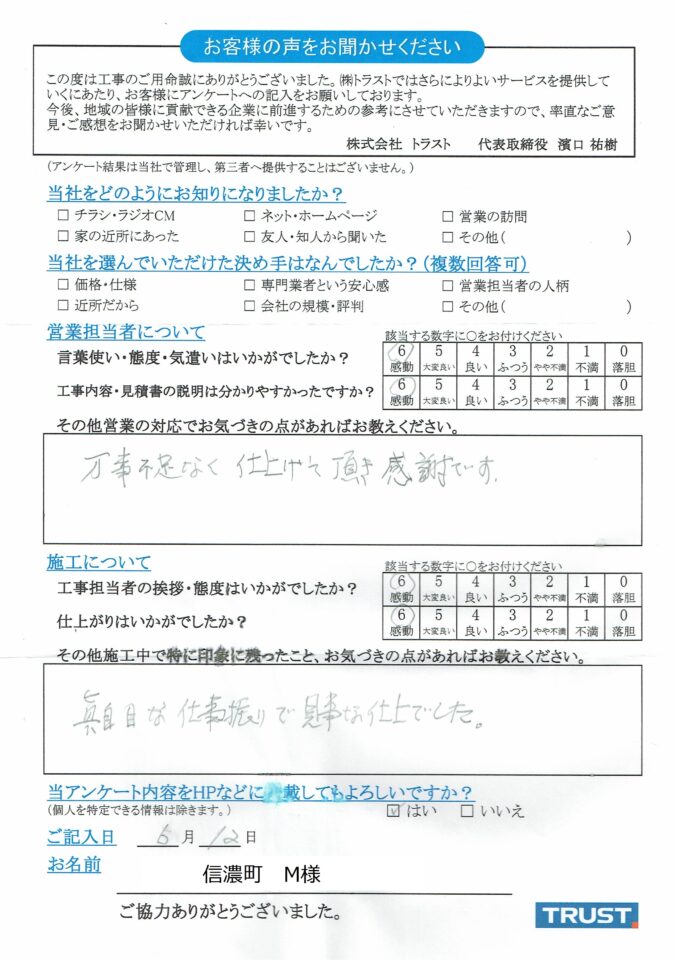 お客様の声をお聞かせください
この度は工事のご用命誠にありがとうございました。㈱トラストではさらによりよいサービスを提供して
いくにあたり、お客様にアンケートへの記入をお願いしております。
今後、地域の皆様に貢献できる企業に前進するための参考にさせていただきますので、率直なご意
見・ご感想をお聞かせいただければ幸いです。
株式会社 トラスト 代表取締役 濱口 祐樹
(アンケート結果は当社で管理し、第三者へ提供することはございません。)
当社をどのようにお知りになりましたか？
□ チラシ・ラジオCM □ ネット・ホームページ □ 営業の訪問
□ 家の近所にあった □ 友人・知人から聞いた □ その他( )
当社を選んでいただけた決め手はなんでしたか？(複数回答可)
□ 価格・仕様 □ 専門業者という安心感 □ 営業担当者の人柄
□ 近所だから □ 会社の規模・評判 □ その他( )
営業担当者について 該当する数字に○をお付けください
言葉使い・態度・気遣いはいかがでしたか？ 6 5 4 3 2 1 0
感動 大変良い 良い ふつう やや不満 不満 落胆
工事内容・見積書の説明は分かりやすかったですか？ 6 5 4 3 2 1 0
感動 大変良い 良い ふつう やや不満 不満 落胆
その他営業の対応でお気づきの点があればお教えください。
万事不足なく仕上げて頂き感謝です。
施工について 該当する数字に○をお付けください
工事担当者の挨拶・態度はいかがでしたか？ 6 5 4 3 2 1 0
感動 大変良い 良い ふつう やや不満 不満 落胆
仕上がりはいかがでしたか？ 6 5 4 3 2 1 0
感動 大変良い 良い ふつう やや不満 不満 落胆
その他施工中で特に印象に残ったこと、お気づきの点があればお教えください。
真面目な仕事振りで見事な仕上でした。
当アンケート内容をHPなどに 載してもよろしいですか？
(個人を特定できる情報は除きます。) ☑ はい □ いいえ
ご記入日 5月 12日
お名前 信濃町 M様
ご協力ありがとうございました。
TRUST